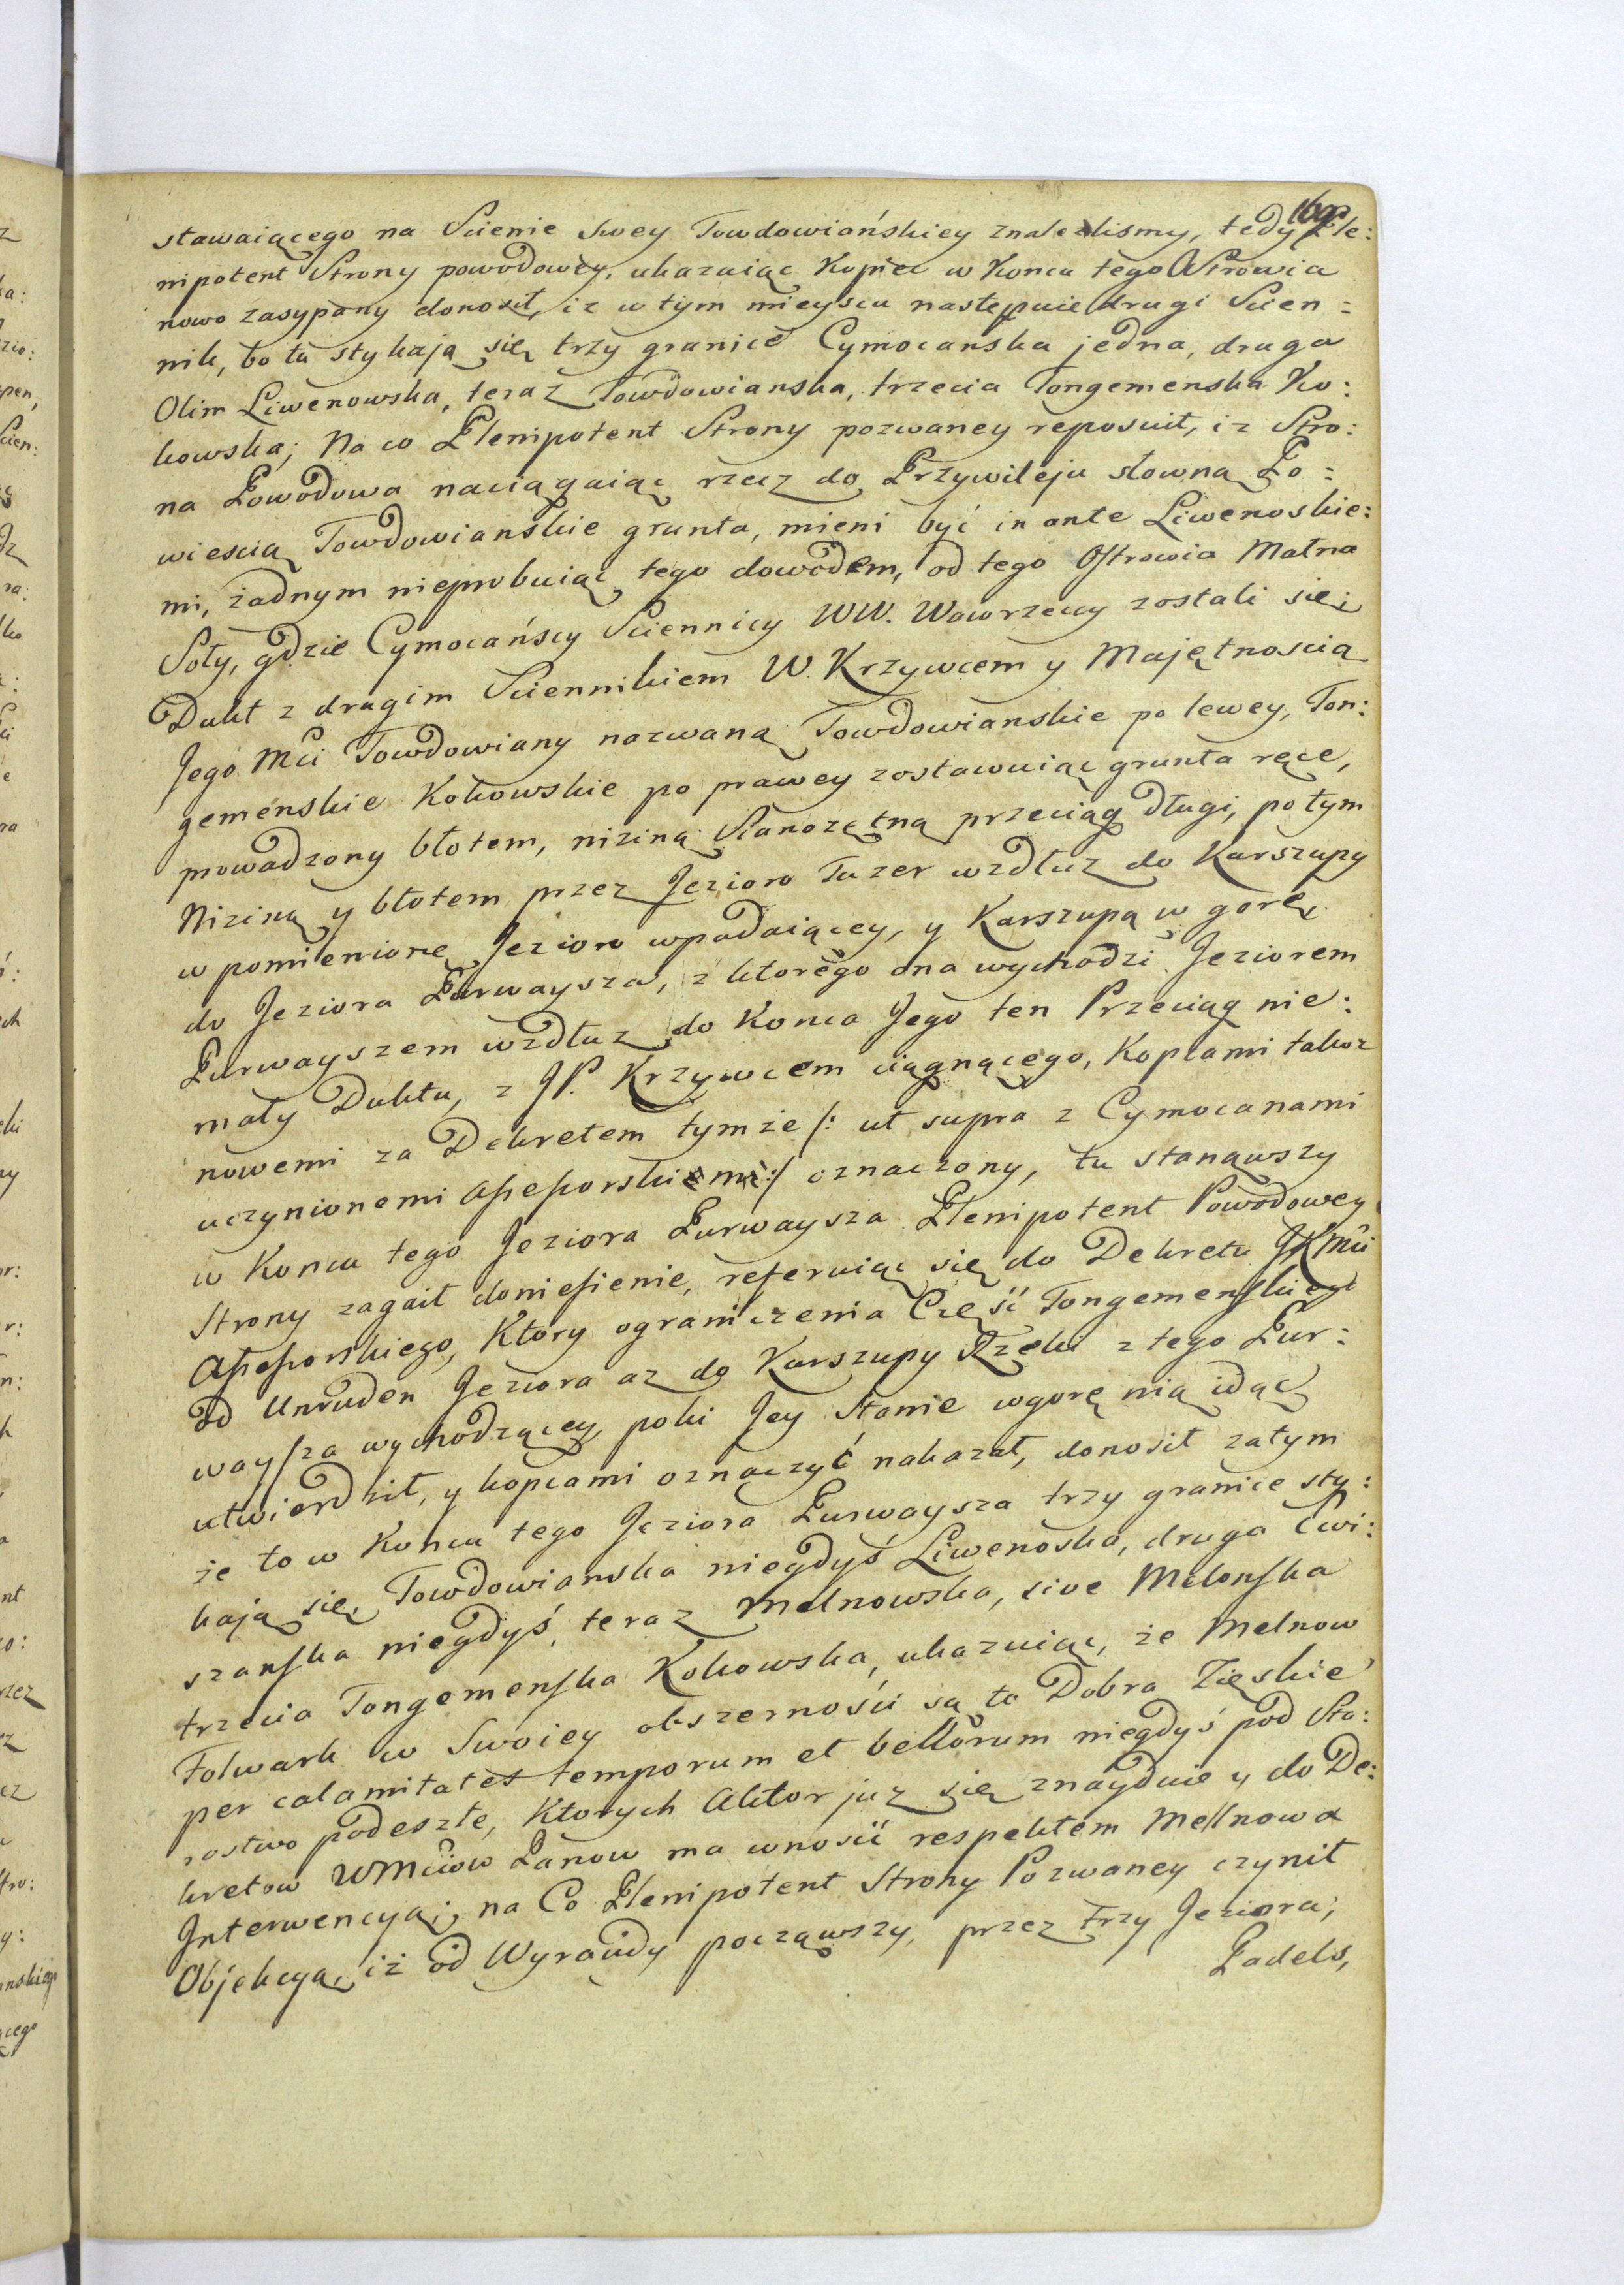 stawaiącego na Scienie swey Towdowiańskiey znalezlismy, tedy Ple:
nipotent Strony powodowey, ukazuiąc Kopiec w Koncu tego Ostrowia
nowo zasypany donosił, iz w tym mieyscu następuie drugi Scien=
nik, bo tu stykają się trzy granice Cymocanska jedna, druga
Olim Liwenowska, teraz Towdowianska, trzecia Tongemenska Ko:
kowska; Na co Plenipotent Strony pozwaney reposuit, iz Stro:
na Powodowa naciągaiąc rzecz do Przywileju słowną Po=
wiescią Towdowianskie grunta, mieni być in ante Liwenoskie:
mi, żadnym nieprobuiąc tego dowodem, od tego Ostrowia Małna
Soły, gdzie Cymocańscy Sciennicy WW. Wawrzeccy zostali się;
Dukt z drugim Sciennikiem W. Krzywcem y Majętnoscią
Jego Mci Towdowiany nazwaną Towdowianskie po lewey, Ton:
gemenskie Kokowskie po prawey zostawuiąc grunta ręce,
prowadzony błotem, niziną Sianozętną przeciąg długi, potym
Niziną y błotem przez Jezioro Tuzer wzdłuz do Karszupy
w pomienione Jezioro wpadaiącey, y Karszupą w gorę
do Jeziora Purwaysza, z ktorego ona wychodzi Jeziorem
Purwayszem wzdłuz do Konca Jego ten Przeciąg nie:
mały Duktu, z JP. Krzywcem ciągnącego, Kopcami takoz
nowemi za Dekretem tymże /: ut supra z Cymocanami
uczynionemi Assessorskiemi:/ oznaczony, tu stanąwszy
w Koncu tego Jeziora Purwaysza Plenipotent Powodowey
Strony zagaił doniesienie, referuiąc się do Dekretu JKMci
Assessorskiego, Ktory ograniczenia Część Tongemenskiego
od Unruden Jeziora az do Karszupy Rzeki z tego Pur:
waysza wychodzącey, poki Jey Stanie wgorę nią idąc
utwierdził, y kopcami oznaczyć nakazał, donosił zatym
że to w Koncu tego Jeziora Purwaysza trzy granice sty:
kają się Towdowianska niegdyś Liwenoska, druga Cwi:
szanska niegdyś, teraz Melnowska, sive Melonska
trzecia Tongemenska Kokowska, ukazuiąc, że Melnow
Folwark w Swoiey obszerności są to Dobra Zięskie
per calamitates temporum et bellorum niegdyś pod Sta:
rostwo podeszłe, Ktorych Aktor juz się znayduie y do De:
kretow WMciow Panow ma wnosić respektem Mellnowa
Interwencyą; na Co Plenipotent Strony Pozwaney czynił
Objekcyą, iż od Wyraudy począwszy, przez trzy Jeziora;
Padels,